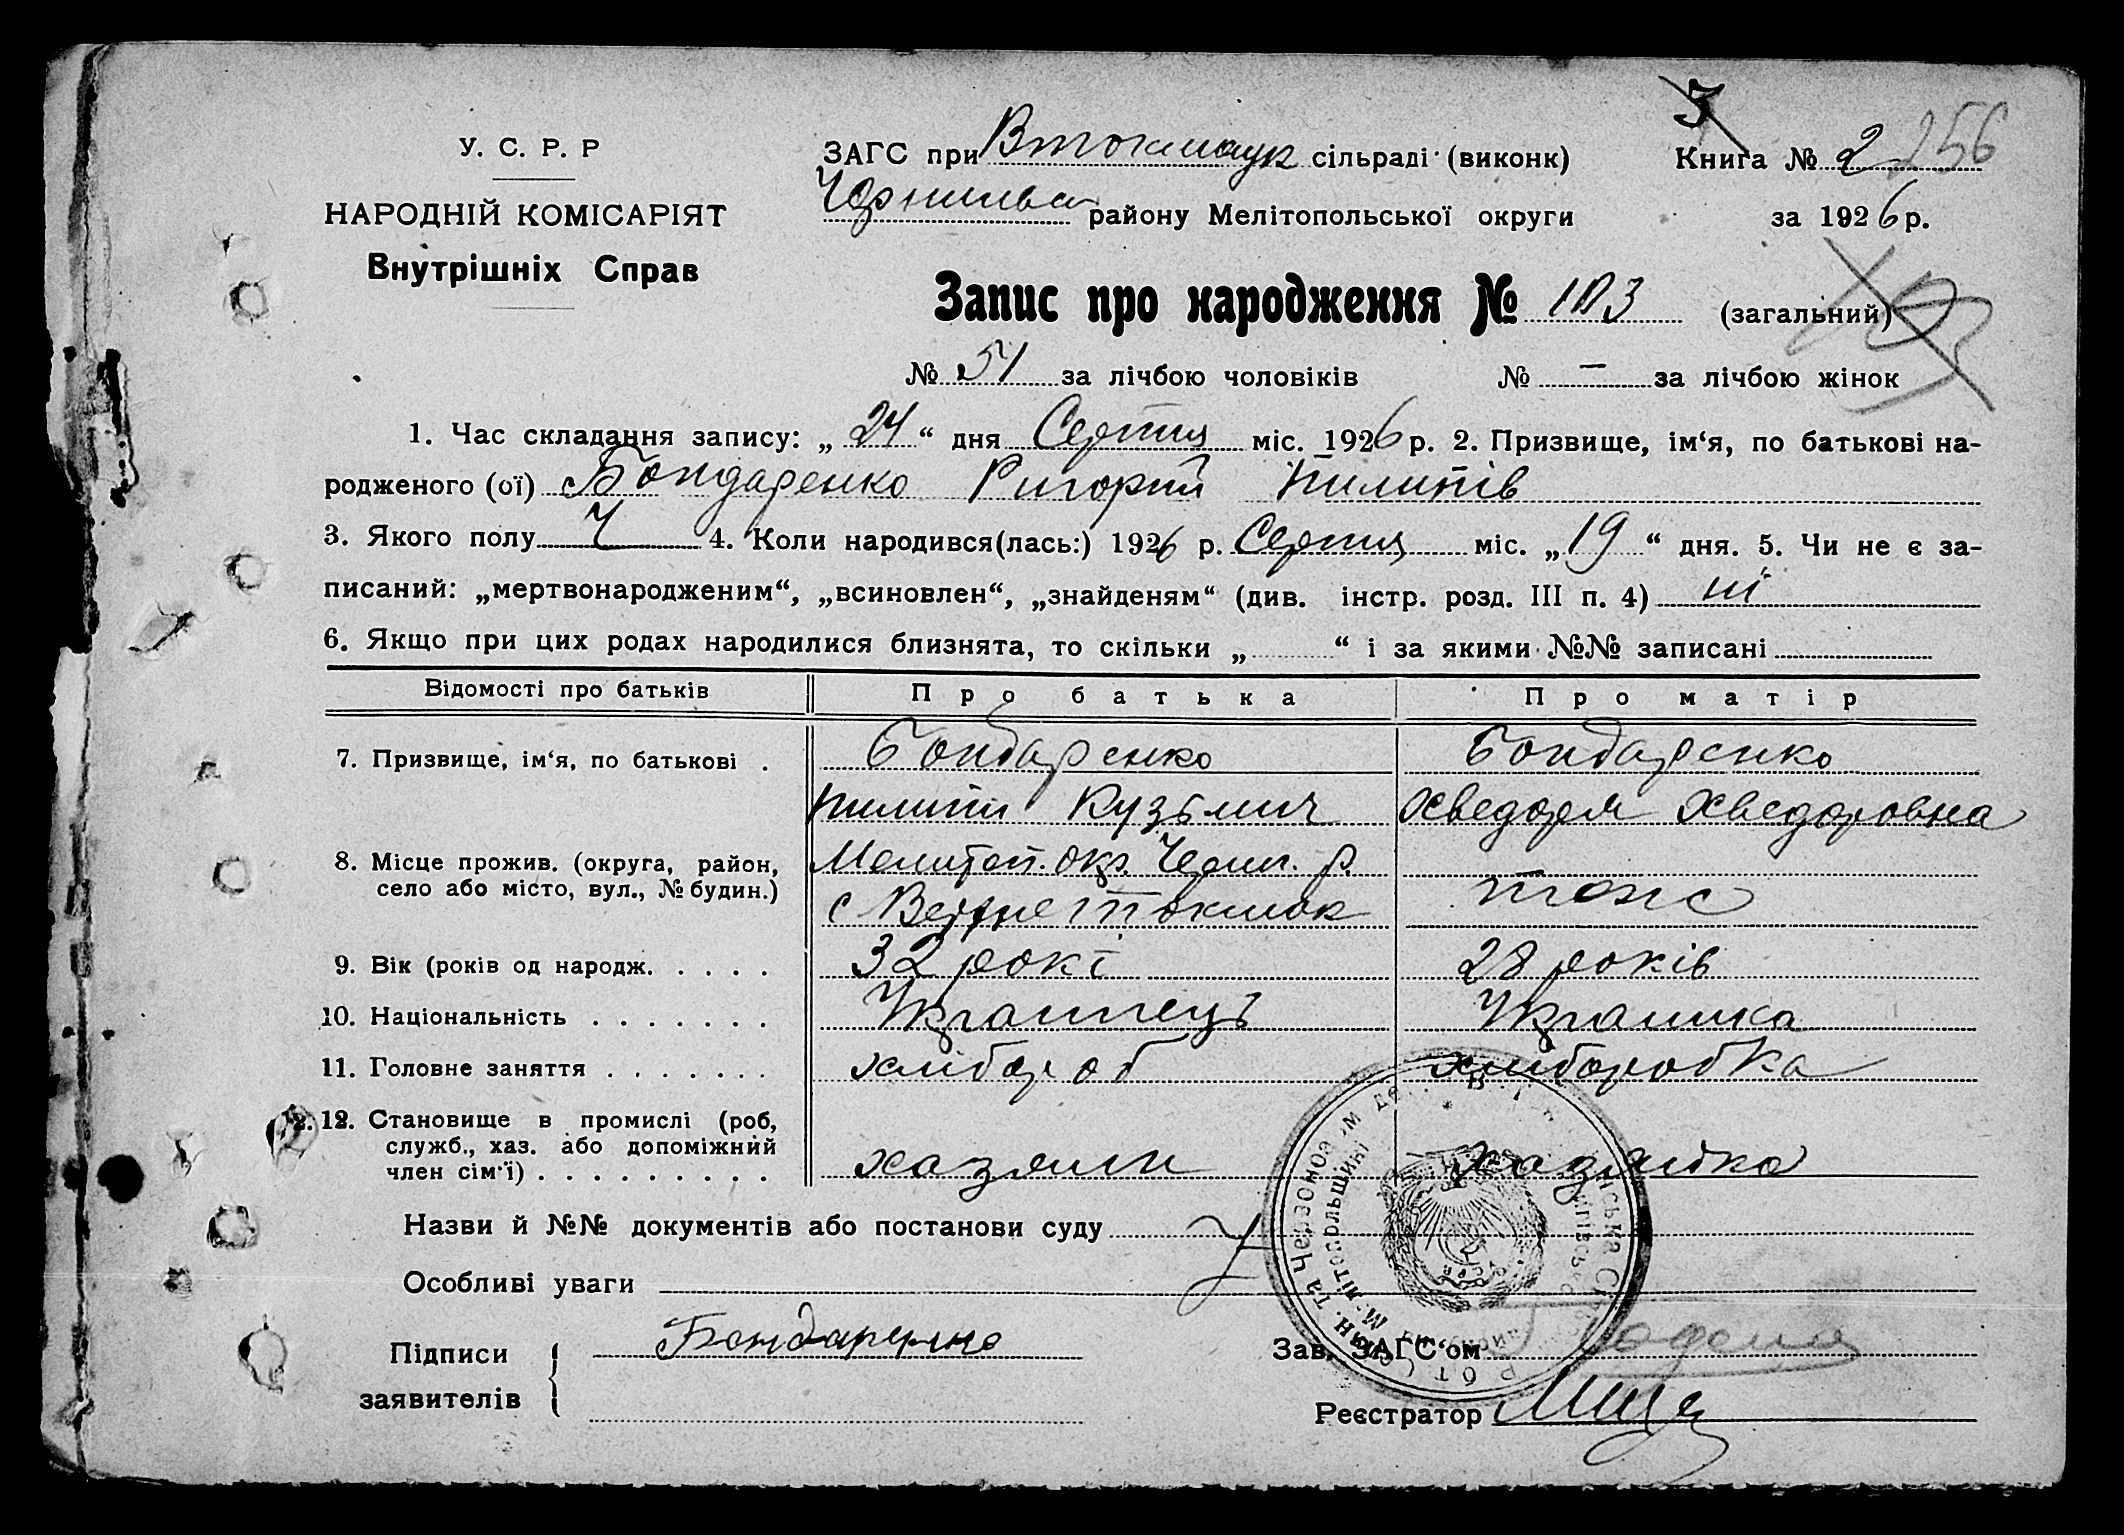 У. С. Р. Р
НАРОДНІЙ КОМІСАРІЯТ
Внутрішніх Справ
ЗАГС при Втокмацк сільраді (виконк)
району Мелітопольської округи
Книга № 2 256
за 1926 р.
Запис про народження № 103 (загальний)
№ 51 за лічбою чоловіків № — за лічбою жінок
1. Час складання запису: „ 24 “ дня Серпня міс. 1926 р. 2. Призвище, ім‘я, по батькові на-
родженого (ої) Бондаренко Григорій Пилипів
3. Якого полу Ч 4. Коли народився(лась:) 1926 р. Серпня міс. „ 19 “ дня. 5. Чи не є за-
писаний: „мертвонародженим“, „всиновлен“, „знайденям“ (див. інстр. розд. III п. 4) ні
6. Якщо при цих родах народилися близнята, то скільки „ “ і за якими №№ записані
Відомості про батьків Про батька Про матір
7. Призвище, ім‘я, по батькові . Бондаренко Бондаренко
Пилипп Кузьмич Хведоря Хведоровна
8. Місце прожив. (округа, район, Мелитоп. окр. Черн. р.
село або місто, вул., № будин.) с Верхне Токмак тоже
9. Вік (років од народж. . . . . 32 рокі 28 років
10. Національність . . . . . . . Украінець Украинка
11. Головне заняття . . . . . . . хлібороб хліборобка
12. Становище в промислі (роб,
служб., хаз. або допоміжний хазяин хазяйка
член сім‘ї) . . . . . . . . .
Назви й №№ документів або постанови суду
Особливі уваги
Підписи Бондаренко
заявителів
Зав. ЗАГС‘ом
Реєстратор